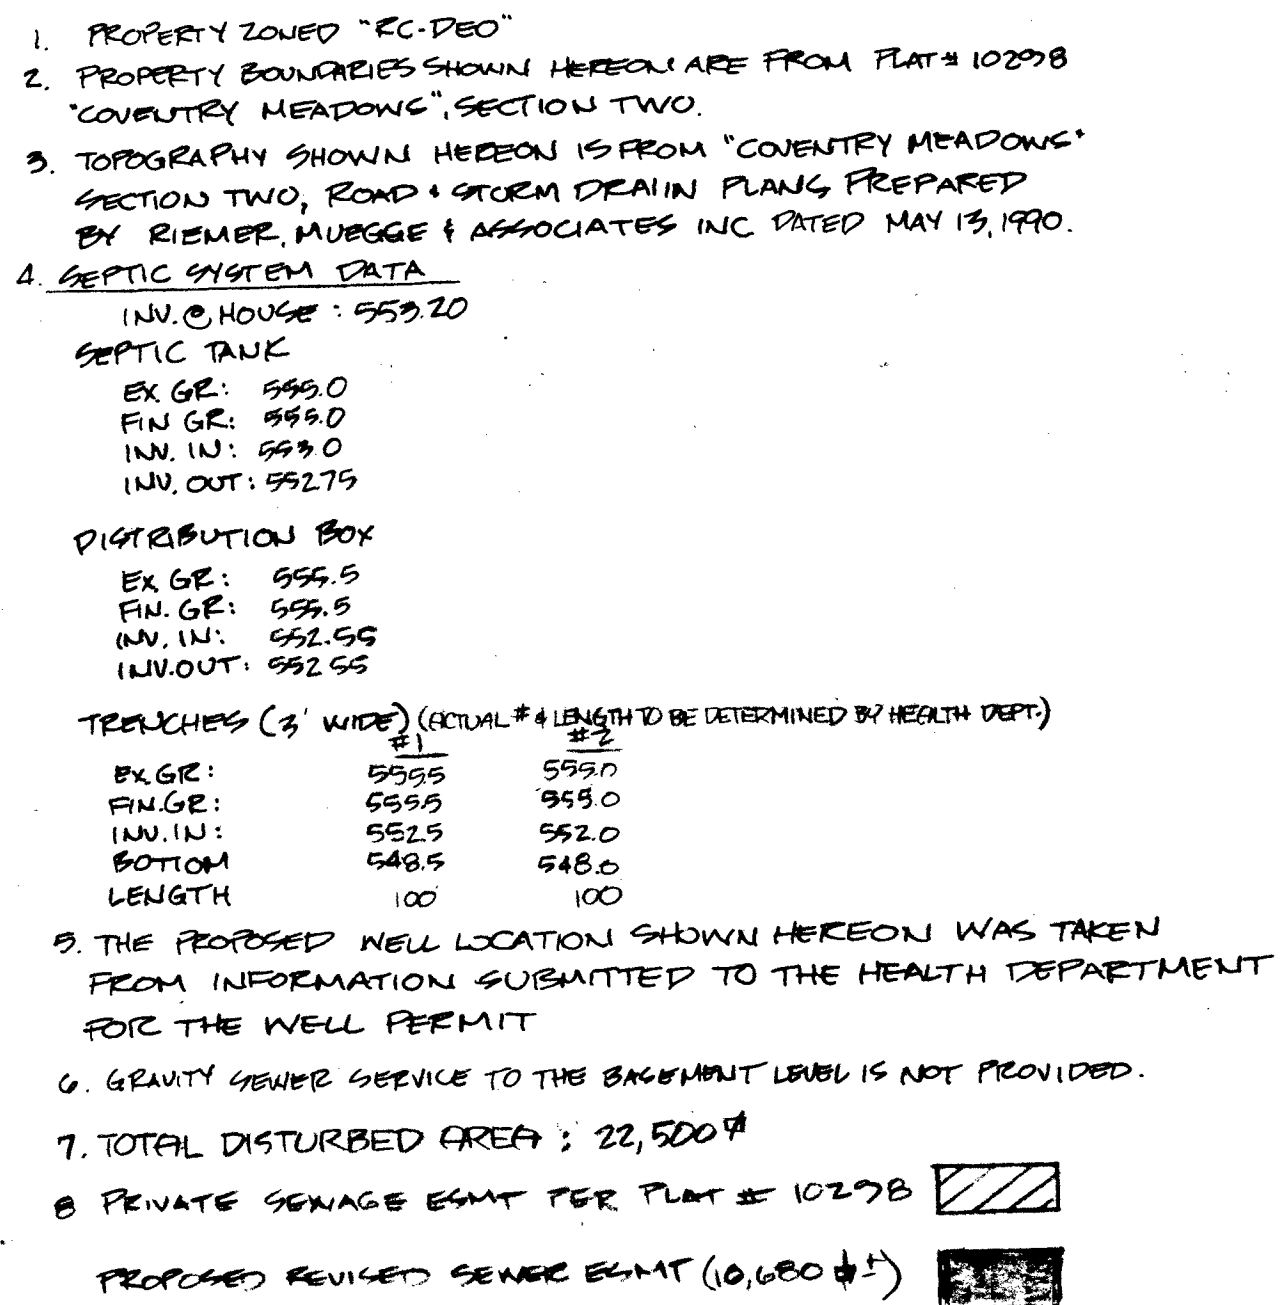 1. PROPERTY ZONED "RC-DEO"
2. PROPERTY BOUNDARIES SHOWN HEREON ARE FROM PLAT # 10298
"COVENTRY MEADOWS", SECTION TWO.
3. TOPOGRAPHY SHOWN HEREON IS FROM "COVENTRY MEADOWS"
SECTION TWO, ROAD & STORM DRAIN PLANS PREPARED
BY RIEMER, MUEGGE & ASSOCIATES INC DATED MAY 13, 1990.
4. SEPTIC SYSTEM DATA
INV. @ HOUSE : 553.20
SEPTIC TANK
EX. GR: 555.0
FIN GR: 555.0
INV. IN: 553.0
INV. OUT: 552.75
DISTRIBUTION BOX
EX. GR: 555.5
FIN. GR: 555.5
INV. IN: 552.55
INV. OUT: 552.55
TRENCHES (3' WIDE) (ACTUAL # & LENGTH TO BE DETERMINED BY HEALTH DEPT.)
#1 #2
EX. GR: 555.5 555.0
FIN. GR: 555.5 555.0
INV. IN: 552.5 552.0
BOTTOM 548.5 548.0
LENGTH 100 100
5. THE PROPOSED WELL LOCATION SHOWN HEREON WAS TAKEN
FROM INFORMATION SUBMITTED TO THE HEALTH DEPARTMENT
FOR THE WELL PERMIT
6. GRAVITY SEWER SERVICE TO THE BASEMENT LEVEL IS NOT PROVIDED.
7. TOTAL DISTURBED AREA : 22,500 ⌀
8 PRIVATE SEWAGE ESMT PER PLAT # 10298
PROPOSED REVISED SEWER ESMT (10,680 ⌀ ±)